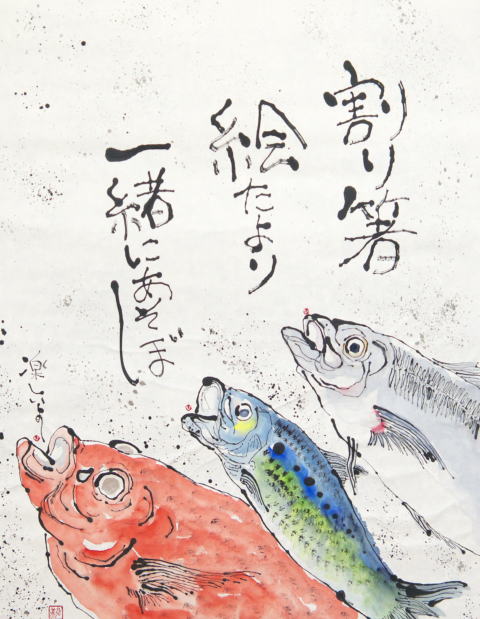 割り箸
絵だより
一緒にあそぼ
楽しいよの